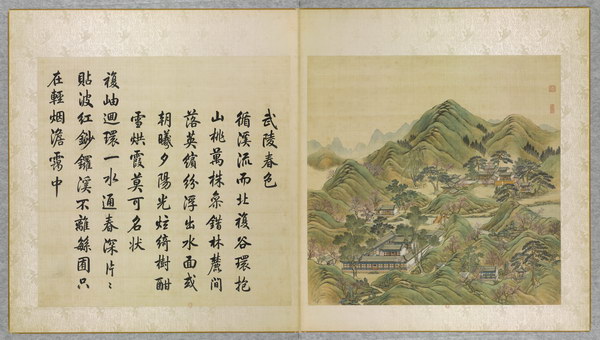 武陵春色
循溪流而北複谷環抱
山桃萬株叅錯林麓間
落英繽紛浮出水面或
朝曦夕陽光炫綺樹酣
雪烘霞莫可名狀
複岫迴環一水通春深片〻
貼波紅鈔鑼溪不離繇囿只
在輕烟澹霧中